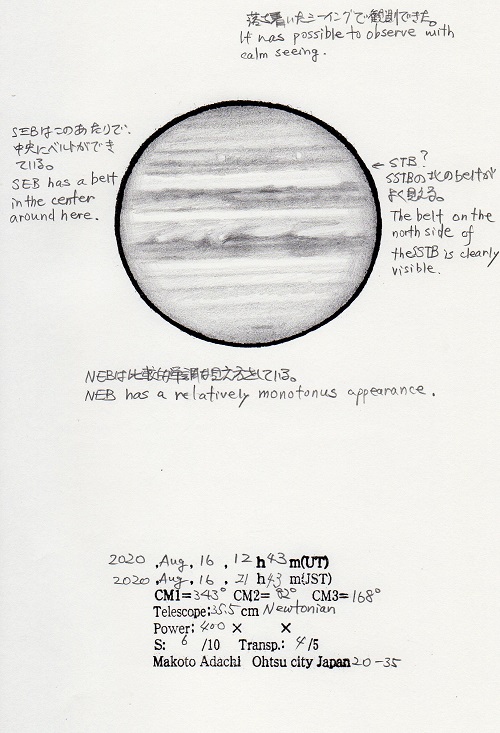 落ち着いたシーイングで観測できた。
It was possible to observe with
calm seeing.
SEBはこのあたりで、
中央にベルトができ
ている。
SEB has a belt
in the center
around here.
← STB?
SSTBの北のbeltが
よく見える。
The belt on the
north side of
the SSTB is clearly
visible.
NEBは比較的単調な見え方をしている。
NEB has a relatively monotonus appearance.
2020 , Aug, 16 , 12 h 43 m(UT)
2020 , Aug, 16 , 21 h 43 m(JST)
CM1= 343° CM2= 92° CM3= 168°
Telescope: 35.5 cm Newtonian
Power: 400 × ×
S: 6 /10 Transp.: 4 /5
Makoto Adachi Ohtsu city Japan 20-35